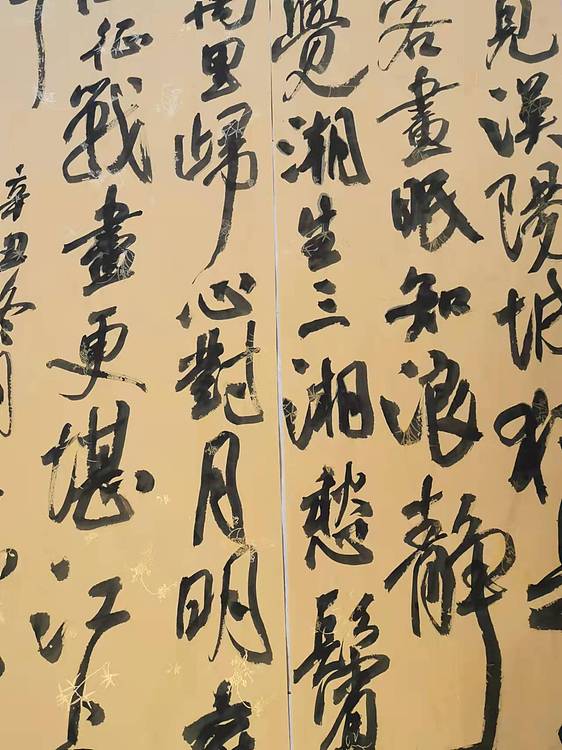 見漢陽城猶
客晝眠知浪靜
覺潮生三湘愁鬢
萬里歸心對月明
征戰盡更堪江上
辛丑冬